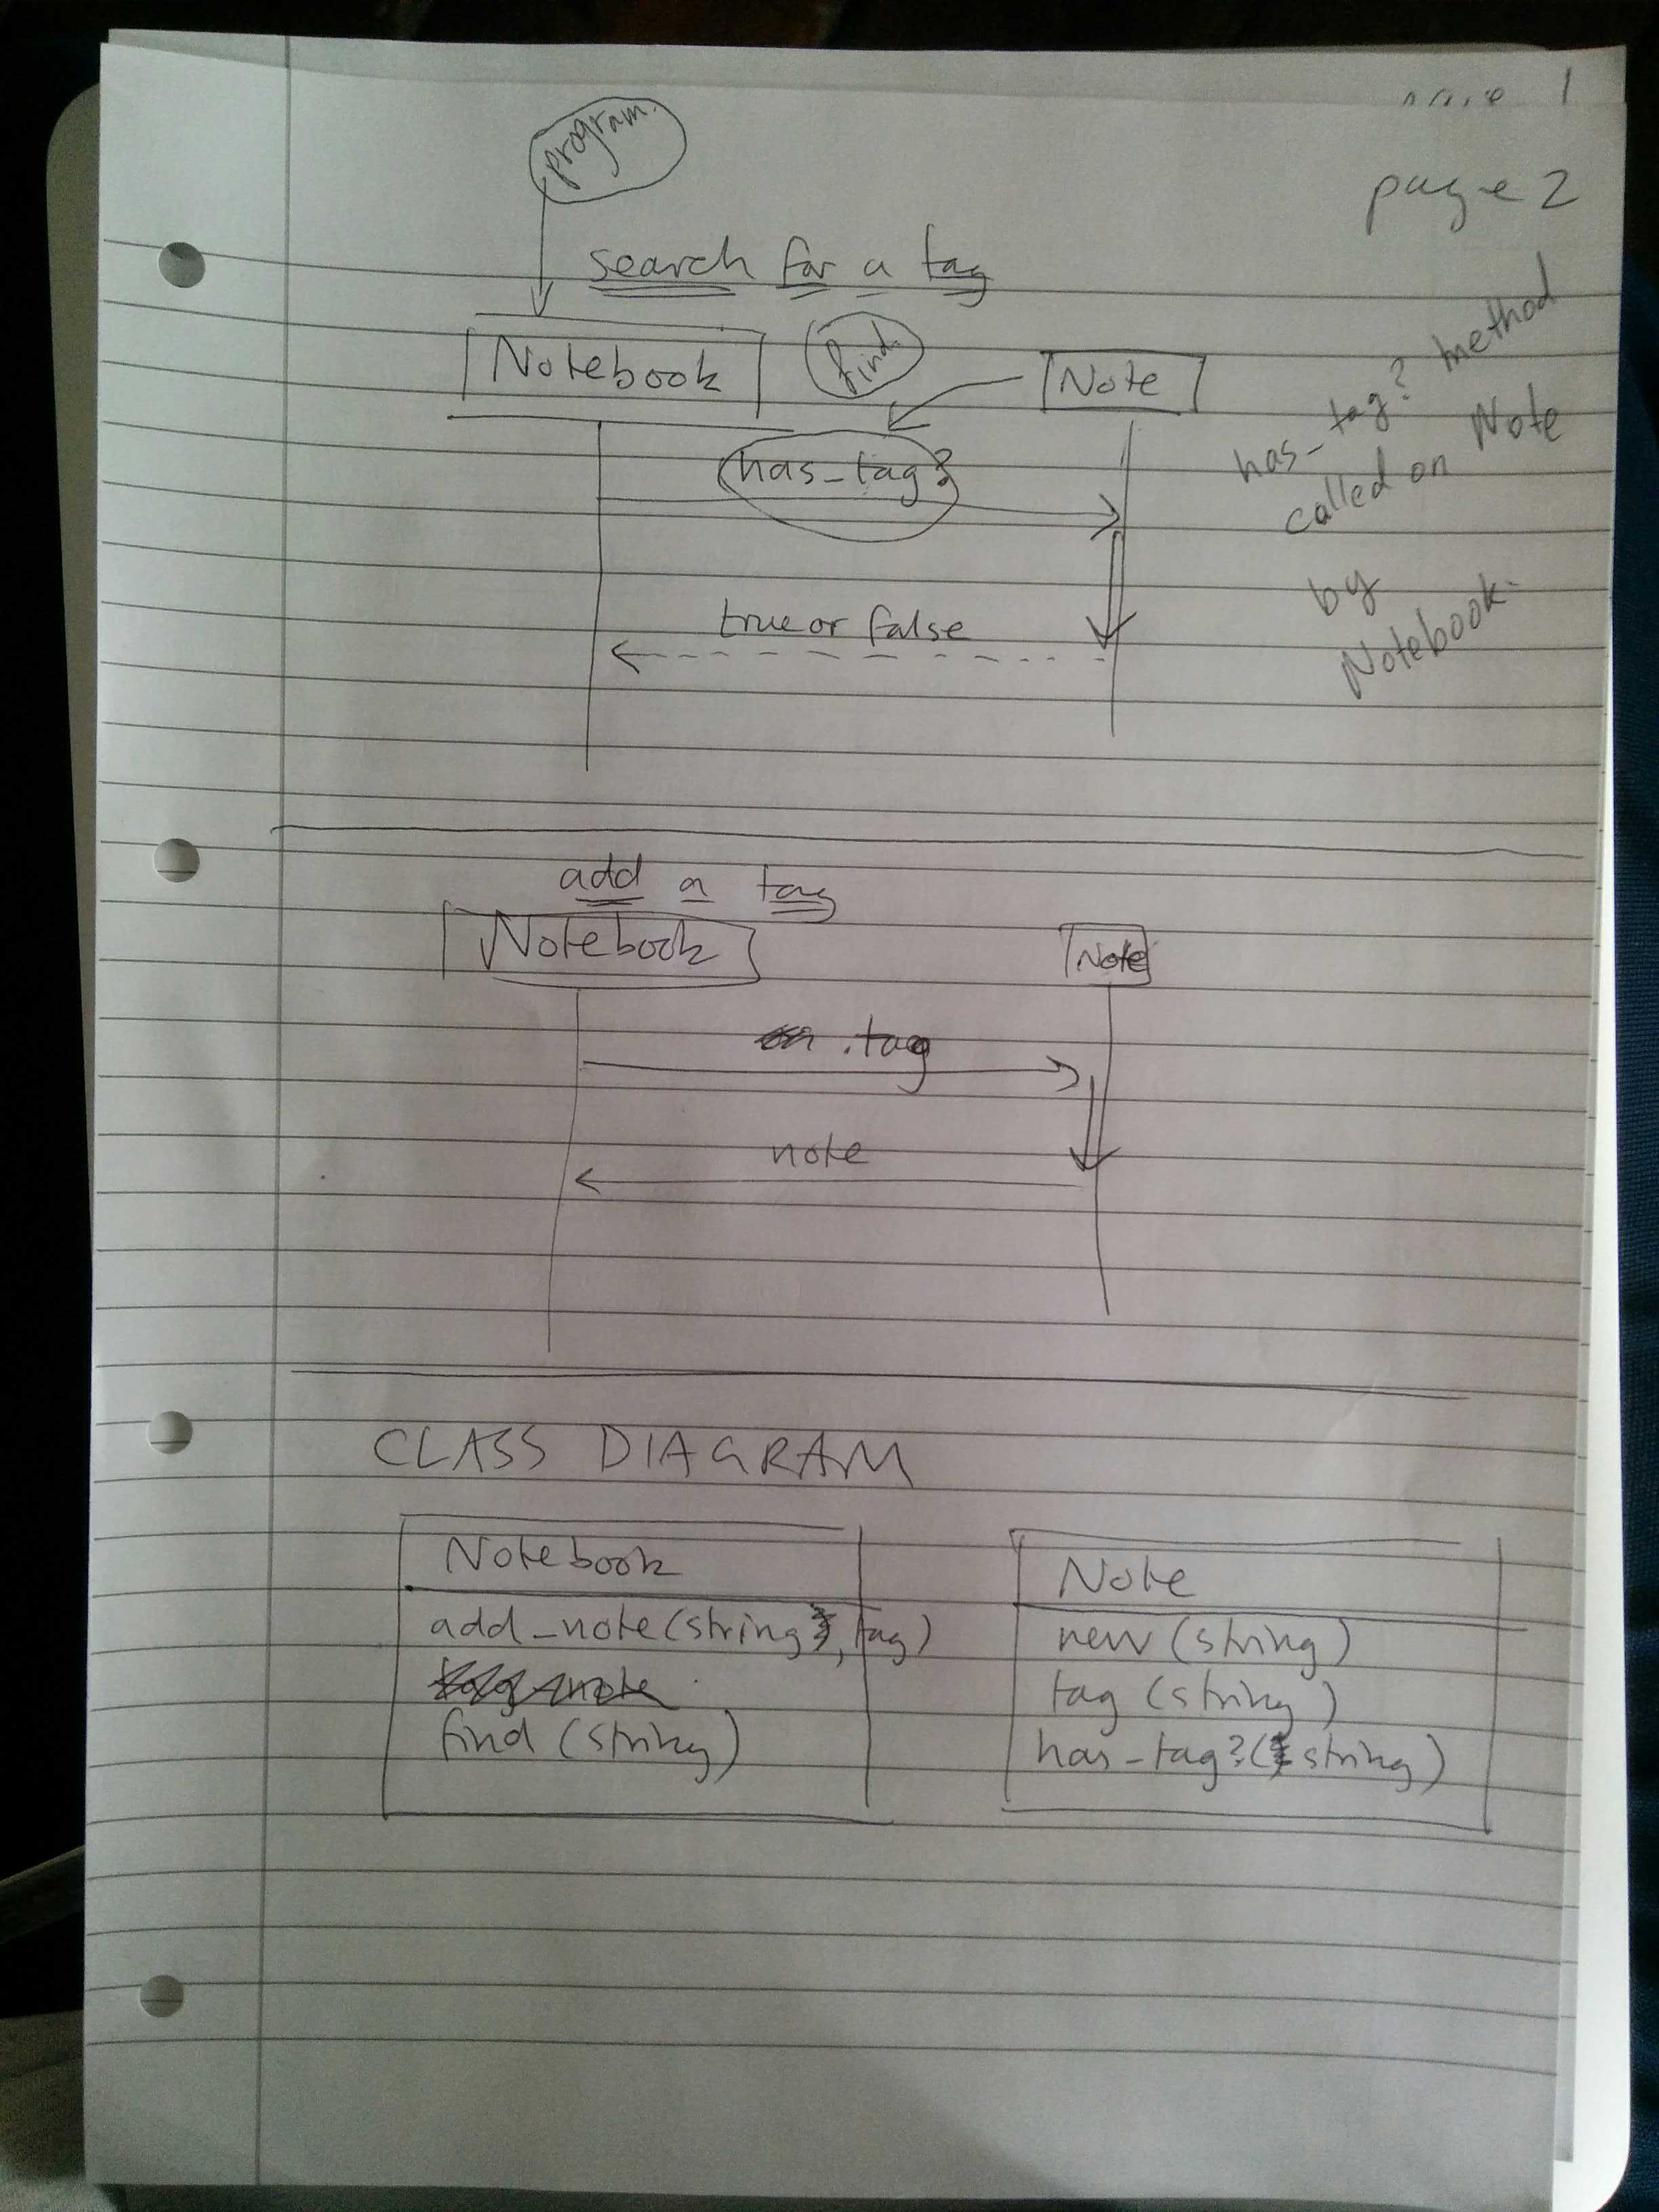 page 1
page 2
program.
search for a tag
Notebook
find.
Note
has_tag?
true or false
has_tag? method
called on Note
by
Notebook.
add a tag
Notebook
Note
.tag
note
CLASS DIAGRAM
Notebook
add_note(string, tag)
find (string)
Note
new (string)
tag (string)
has_tag?(string)